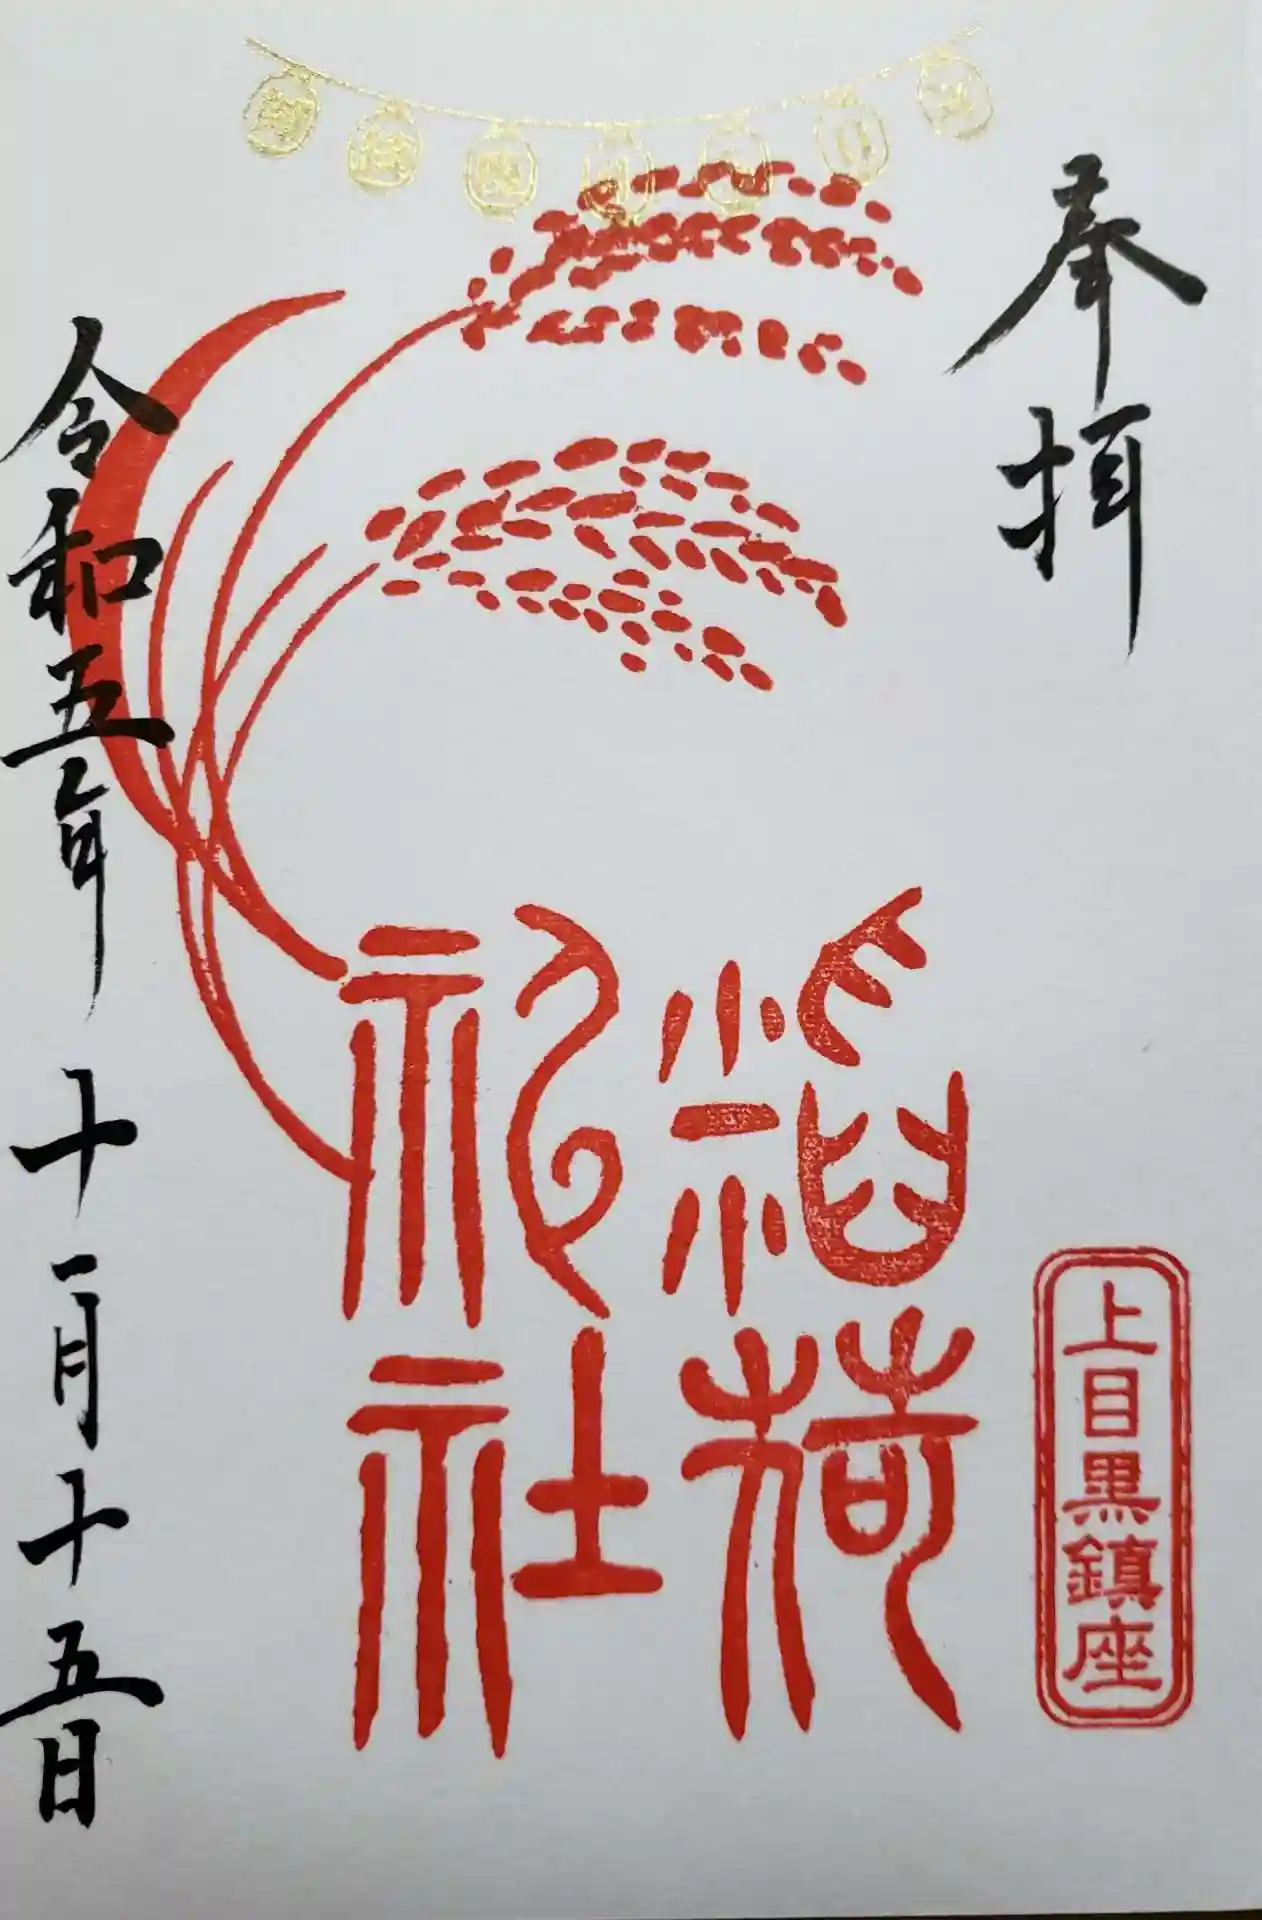 奉拝
上目黒鎮座
稲荷
神社
令和五年十一月十五日